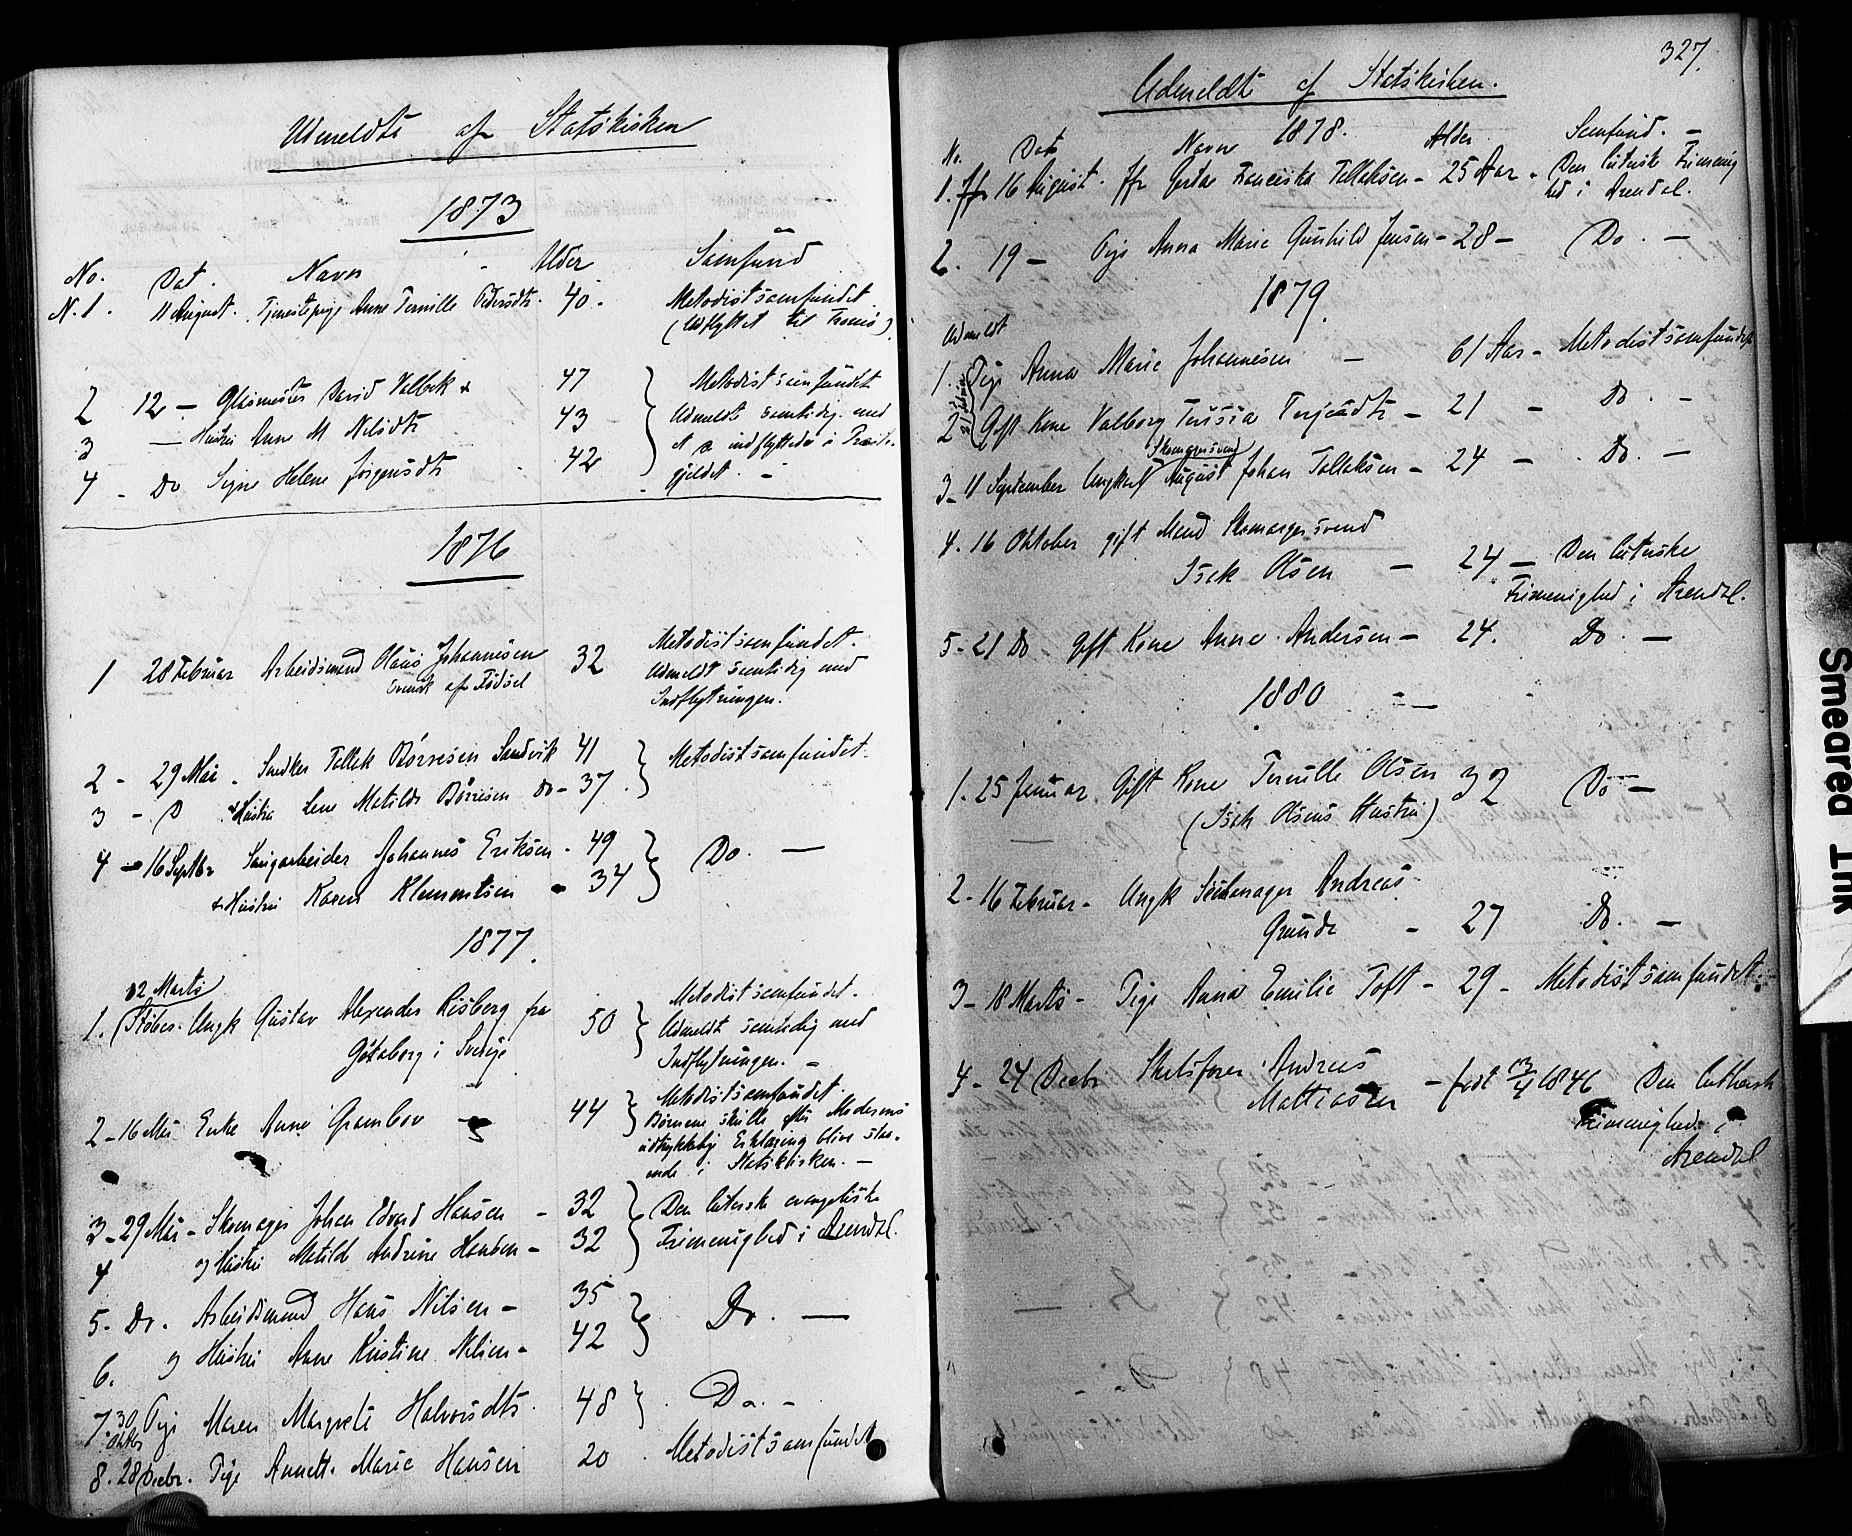 Udmeldte af Statskirken
1873
No. Dat. Navn Alder Samfund
N. 1. 11 August. Tjenestepige Anne Ternille Pedersdtr. 40. Metodistsamfundet
(Udflyttet til Tromø)
2 12 — Glasmester David Valbek + 47 Metodistsamfundet
3 — Hustru Anne M Nilsdtr 43 Udmeldt samtidig med
4 - Do Signe Helene Jörgensdtr 42 at indflyttede i Præste-
gjeldet. -
1876
1 28 Februar Arbeidsmand Olaus Johannesen 32 Metodistsamfundet.
Svensk af Födsel Udmeldt samtidig med
Indflytningen.
2 - 29 Mai - Snedker Tellek Börresen Sandvik 41 Metodistsamfundet.
3 - D + Hustru Lene Matilde Börresen Do - 37
4 - 16 Septbr Sagarbeider Johannes Eriksen - 49 Do. —
+ Hustru Karen Klementsen - 34
1877.
12 Marts
1. Støber. Ungk Gustav Alexander Risberg fra 50 Metodistsamfundet.
Göteborg i Sverige Udmeldt samtidig med
Indflytningen. -
2 - 16 Mai Enke Anne Grambov - 44 Metodistsamfundet.
Börnene skulle efter Moderens
udtrykkelig Erklæring blive sta-
ende i Statskirken. —
3 - 29 Mai - Skomager Johan Edvard Hansen - 32 Den lutersk evangeliske
4 og Hustru Matilde Andrine Hansen - 32 Frimenighed i Arendal.
5 - Do. Arbeidsmand Hans Nilsen - 35 Do. —
6. og Hustru Anne Kristine Nilsen - 42
7. 30 Oktbr Pige Maren Margrete Halvorsdtr. 48 Do. -
8. 28 Decbr. Pige Annette Marie Hansen 20 Metodistsamfundet
327.
Udmeldte af Statskirken.
1878.
No. Dat Navn Alder Samfund. -
1. 16 August. Gertine Franciska Tellaksen - 25 Aar - Den luterske Frimenig
hed i Arendal.
2. 19 - Pige Anna Marie Gunhild Jensen - 28 - Do. —
1879.
Udmeldt
1. Pige Anna Marie Johannesen - 61 Aar - Metodistsamfundet
2 Gift Kone Valborg Terjesdtr - 21 - Do. -
Skomagersvend
3 - 11 September Ungkarl August Johan Tellaksen - 24 - Do. —
4. 16 Oktober gift Mand Skomagersvend
Isak Olsen - 24 - Den luterske
Frimenighed i Arendal.
5 - 21 Do - Gift Kone Anne Andersen - 24. Do. —
1880 -
1. 25 Januar Gift Kone Ternille Olsen 32 Do —
(Isak Olsens Hustru)
2 - 16 Februar - Ungk Skomager Andreas
Grunde - 27 Do. —
3 - 18 Marts - Pige Anna Emilie Toft - 29 - Metodistsamfundet.
4 - 24 Decbr Andreas
Mattiassen - født 13/4 1846 Den luthersk
Frimenighed i
Arendal
Smeared Ink